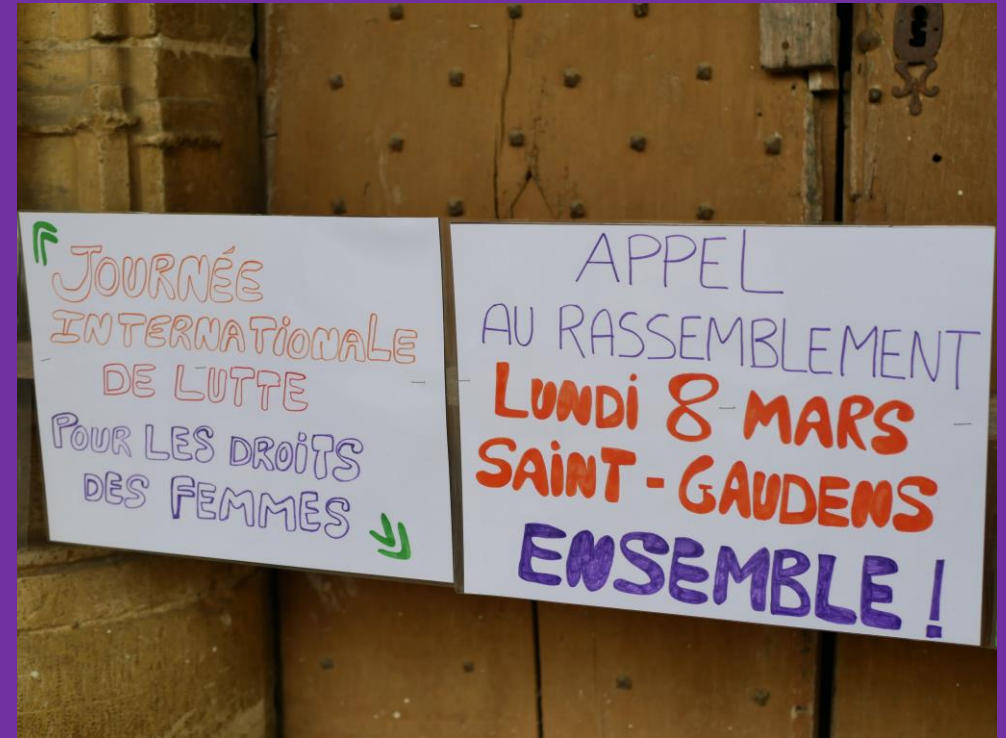 « JOURNÉE
INTERNATIONALE
DE LUTTE
POUR LES DROITS
DES FEMMES »
APPEL
AU RASSEMBLEMENT
LUNDI 8 MARS
SAINT-GAUDENS
ENSEMBLE !